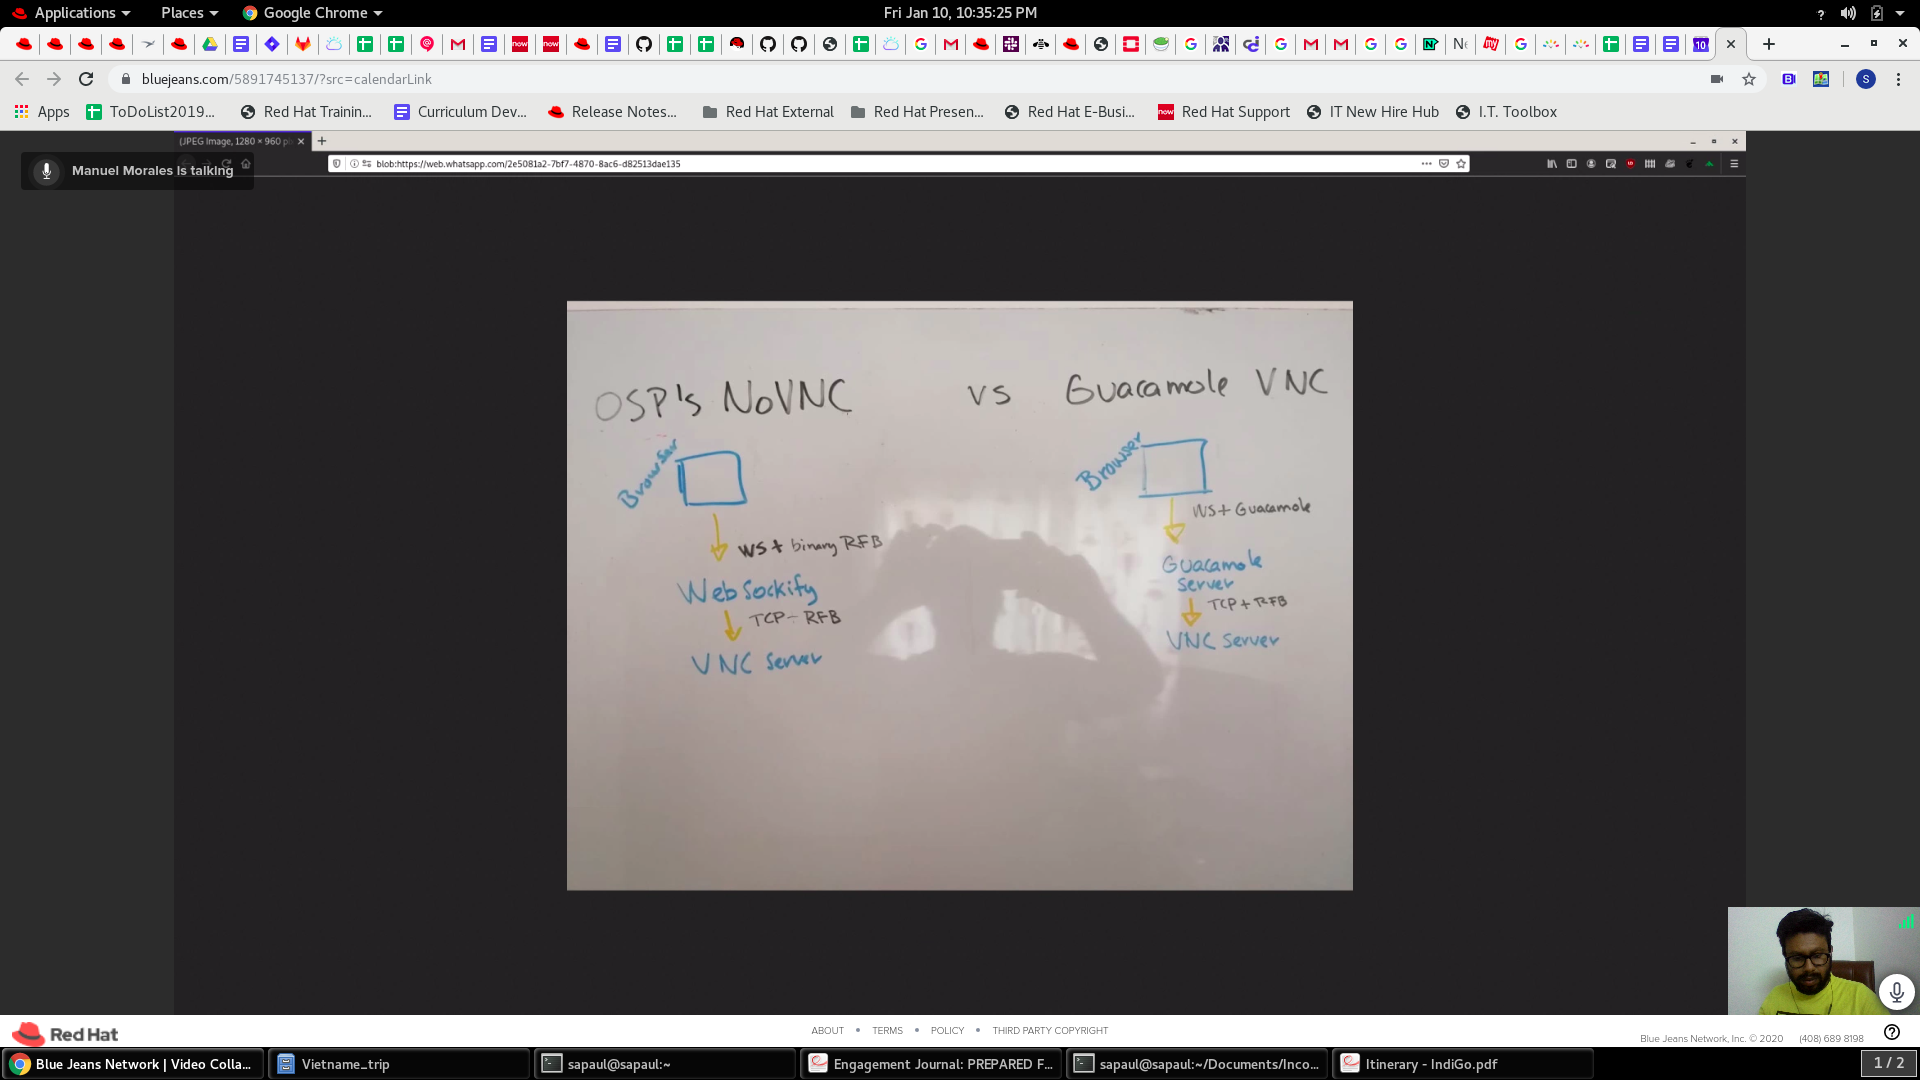 Applications
Places
Google Chrome
Fri Jan 10, 10:35:25 PM
bluejeans.com/5891745137/?src=calendarLink
Apps
ToDoList2019...
Red Hat Trainin...
Curriculum Dev...
Release Notes...
Red Hat External
Red Hat Presen...
Red Hat E-Busi...
Red Hat Support
IT New Hire Hub
I.T. Toolbox
(JPEG Image, 1280 × 960 pi
blob:https://web.whatsapp.com/2e5081a2-7bf7-4870-8ac6-d82513dae135
Manuel Morales is talking
OSP's NoVNC vs Guacamole VNC
Browser
WS + binary RFB
WebSockify
TCP - RFB
VNC Server
Browser
WS + Guacamole
Guacamole
Server
TCP + RFB
VNC Server
Red Hat
ABOUT • TERMS • POLICY • THIRD PARTY COPYRIGHT
Blue Jeans Network, Inc. © 2020 (408) 689 8198
Blue Jeans Network | Video Colla...
Vietname_trip
sapaul@sapaul:~
Engagement Journal: PREPARED F...
sapaul@sapaul:~/Documents/Inco...
Itinerary - IndiGo.pdf
1 / 2